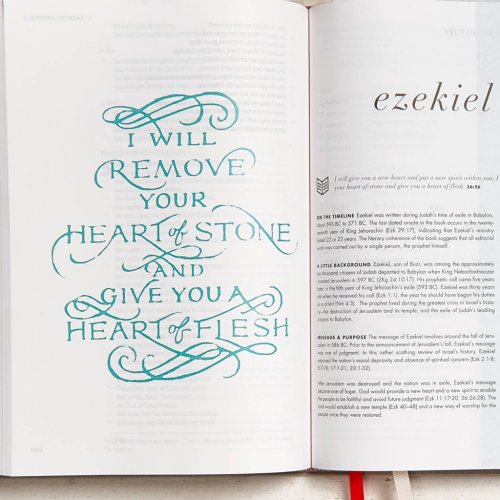 I WILL
REMOVE
YOUR
HEART of STONE
AND
GIVE YOU A
HEART of FLESH
ezekiel
I will give you a new heart and put a new spirit within you; I
your heart of stone and give you a heart of flesh. 36:26
ON THE TIMELINE Ezekiel was written during Judah's time of exile in Babylon,
about 593 BC to 571 BC. The last dated oracle in the book occurs in the twenty-
seventh year of King Jehoiachin (Ezk 29:17), indicating that Ezekiel's ministry
lasted 22 or 23 years. The literary coherence of the book suggests that all editorial
work was carried out by a single person, the prophet himself.
A LITTLE BACKGROUND Ezekiel, son of Buzi, was among the approximately
ten thousand citizens of Judah deported to Babylon when King Nebuchadnezzar
invaded Jerusalem in 597 BC (2Kg 24:10-17). His prophetic call came five years
later, in the fifth year of King Jehoiachin's exile (593 BC). Ezekiel was thirty years
old when he received his call (Ezk 1:1), the year he should have begun his duties
as a priest (Nm 4:3). The prophet lived during the greatest crisis in Israel's histo-
ry—the destruction of Jerusalem and its temple, and the exile of Judah's leading
citizens to Babylon.
MESSAGE & PURPOSE The message of Ezekiel revolves around the fall of Jeru-
salem in 586 BC. Prior to the announcement of Jerusalem's fall, Ezekiel's message
was one of judgment. In this rather scathing review of Israel's history, Ezekiel
exposed the nation's moral depravity and absence of spiritual concern (Ezk 2:1-8;
After Jerusalem was destroyed and the nation was in exile, Ezekiel's message
became one of hope. God would provide a new heart and a new spirit to enable
the people to be faithful and avoid future judgment (Ezk 11:17-20, 36:26-28). The
Lord would establish a new temple (Ezk 40–48) and a new way of worship for the
people once they were restored.